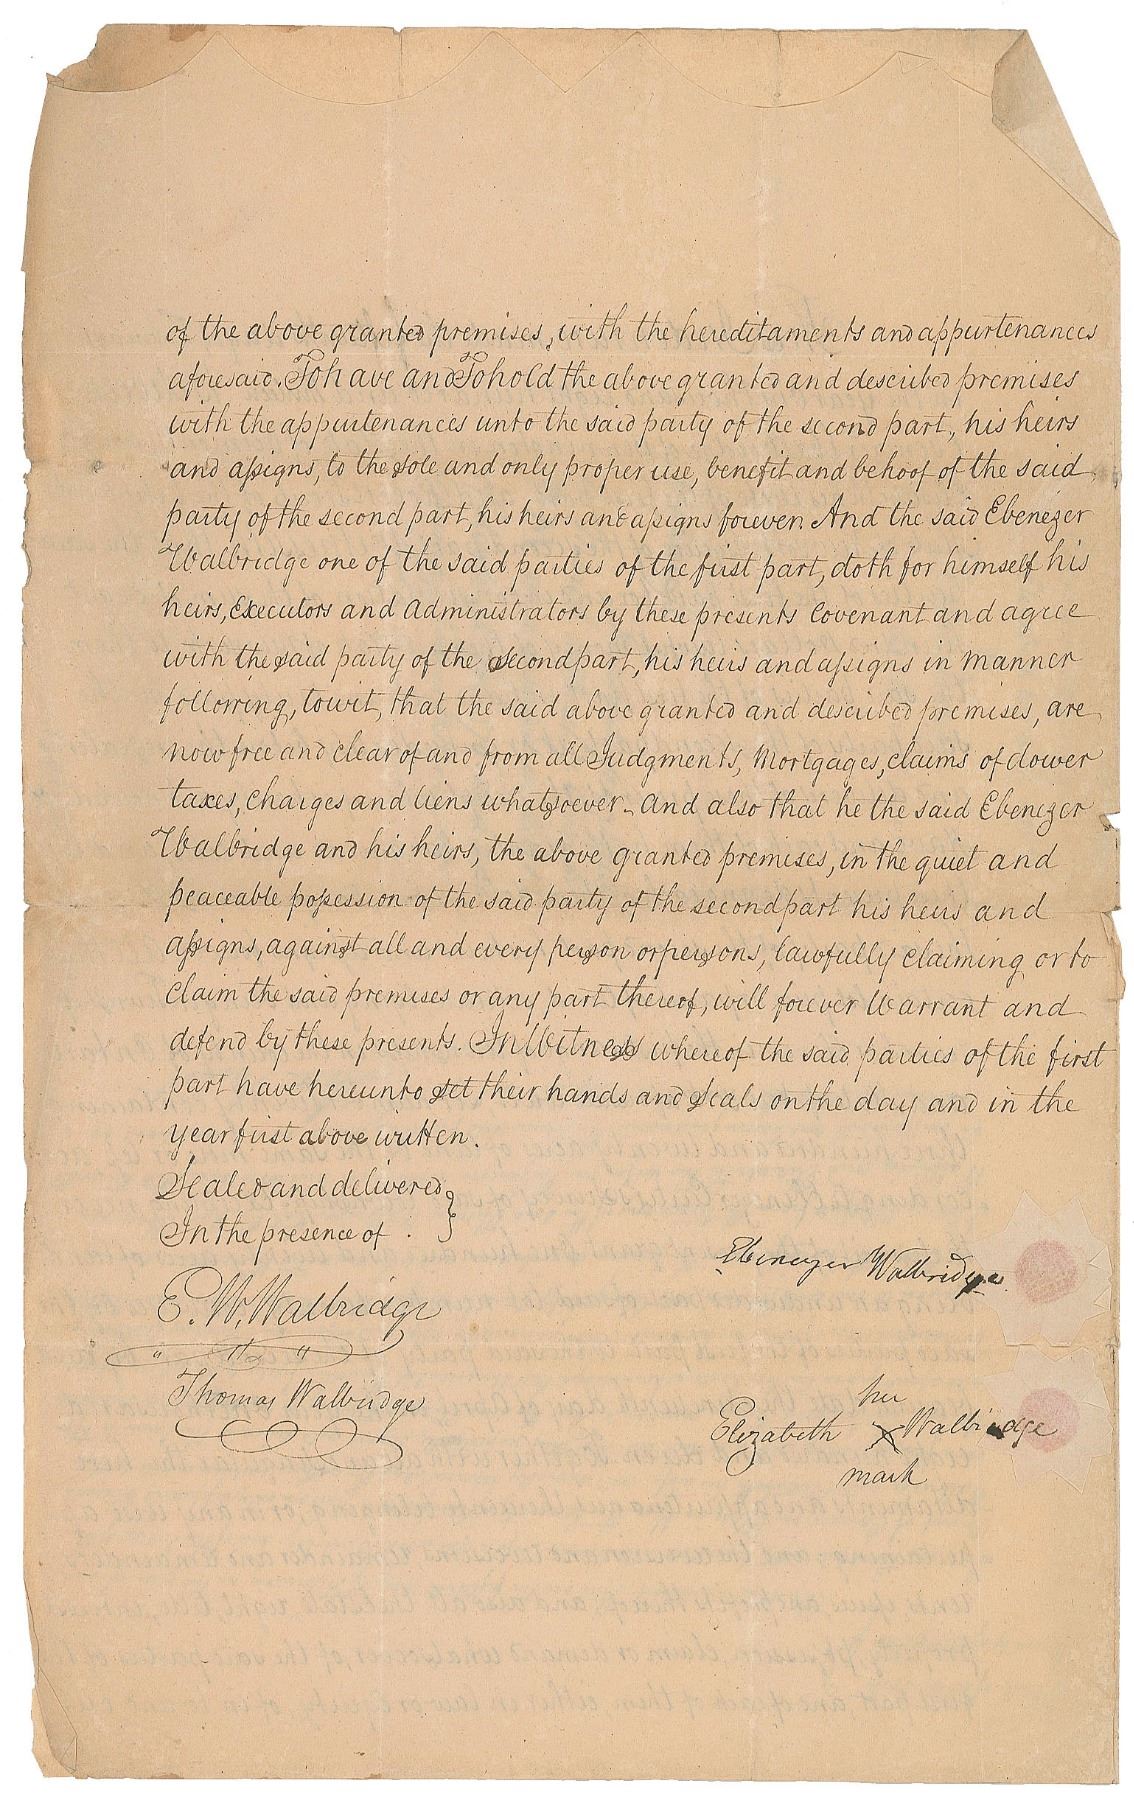 of the above granted premises, with the hereditaments and appurtenances
aforesaid. To have and To hold the above granted and described premises
with the appurtenances unto the said party of the second part, his heirs
and assigns, to the sole and only proper use, benefit and behoof of the said
party of the second part, his heirs and assigns forever. And the said Ebenezer
Walbridge one of the said parties of the first part, doth for himself his
heirs, Executors and Administrators by these presents Covenant and agree
with the said party of the second part, his heirs and assigns in manner
following, to wit, that the said above granted and described premises, are
now free and clear of and from all Judgments, Mortgages, claims of dower
taxes, Charges and liens whatsoever - And also that he the said Ebenezer
Walbridge and his heirs, the above granted premises, in the quiet and
peaceable possession of the said party of the second part his heirs and
assigns, against all and every person or persons, lawfully claiming or to
claim the said premises or any part thereof, will forever Warrant and
defend by these presents. In Witness whereof the said parties of the first
part have hereunto set their hands and Seals on the day and in the
year first above written.
Sealed and delivered
In the presence of
Ebenezer Walbridge
E. W. Walbridge
Thomas Walbridge
her
Elizabeth X Walbridge
mark